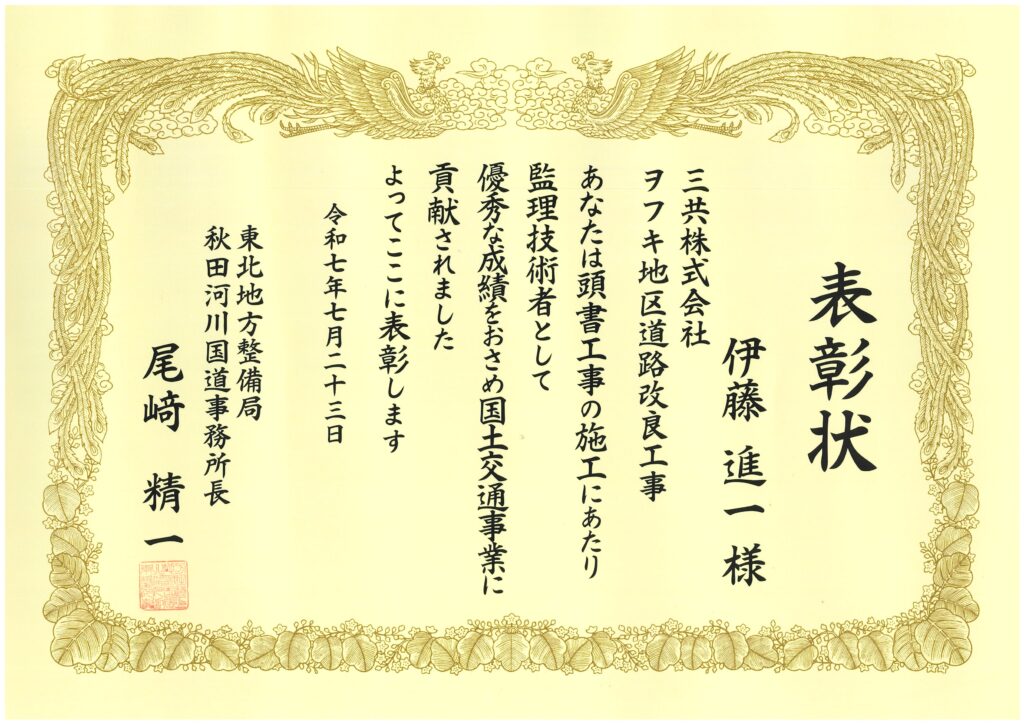 表彰状
伊藤 進一 様
三共株式会社
ヲフキ地区道路改良工事
あなたは頭書工事の施工にあたり
監理技術者として
優秀な成績をおさめ国土交通事業に
貢献されました
よってここに表彰します
令和七年七月二十三日
東北地方整備局
秋田河川国道事務所長
尾﨑 精一